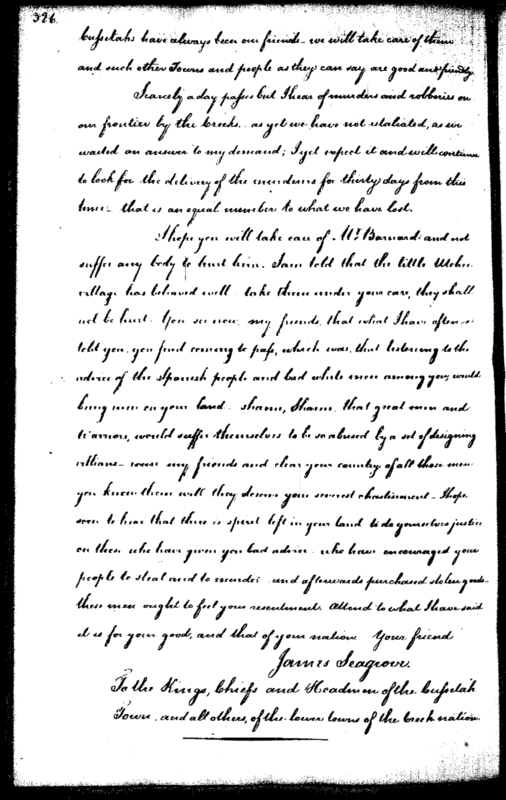 326.
Cussetahs have always been our friends - we will take care of them
and such other Towns and people as they can say are good and friendly
Scarcely a day passes but I hear of murders and robberies on
our frontier by the Creeks. as yet we have not retaliated, as we
waited an answer to my demand; I yet expect it and will continue
to look for the delivery of the murderers for thirty days from this
time - that is an equal number to what we have lost.
I hope you will take care of Mr. Barnard and not
suffer any body to hurt him. I am told that the little
village has behaved well - take them under your care, they shall
not be hurt. You see now, my friends, that what I have often
told you, you find coming to pass, which was, that listening to the
advice of the Spanish people and bad white men among you, would
bring ruin on your land. shame, Shame, that great men and
Warriors, would suffer themselves to be so abused by a set of designing
villians - rouse my friends and clear your country of all those men
you know them well they deserve your severest chastisement - I hope
soon to hear that there is spirit left in your land to do yourselves justice
on those who have given you bad advice - who have encouraged your
people to steal and to murder - and afterwards purchased stolen goods -
these men ought to feel your resentment. Attend to what I have said
it is for your good, and that of your nation. Your friend
James Seagrove.
To the Kings, Chiefs and Headmen of the Cussetah
Town, and all others, of the lower towns of the Creek nation.